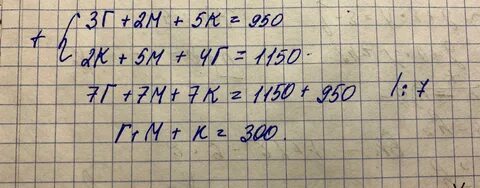 + { 3Г + 2М + 5К = 950
2К + 5М + 4Г = 1150
7Г + 7М + 7К = 1150 + 950 /: 7
Г + М + К = 300.